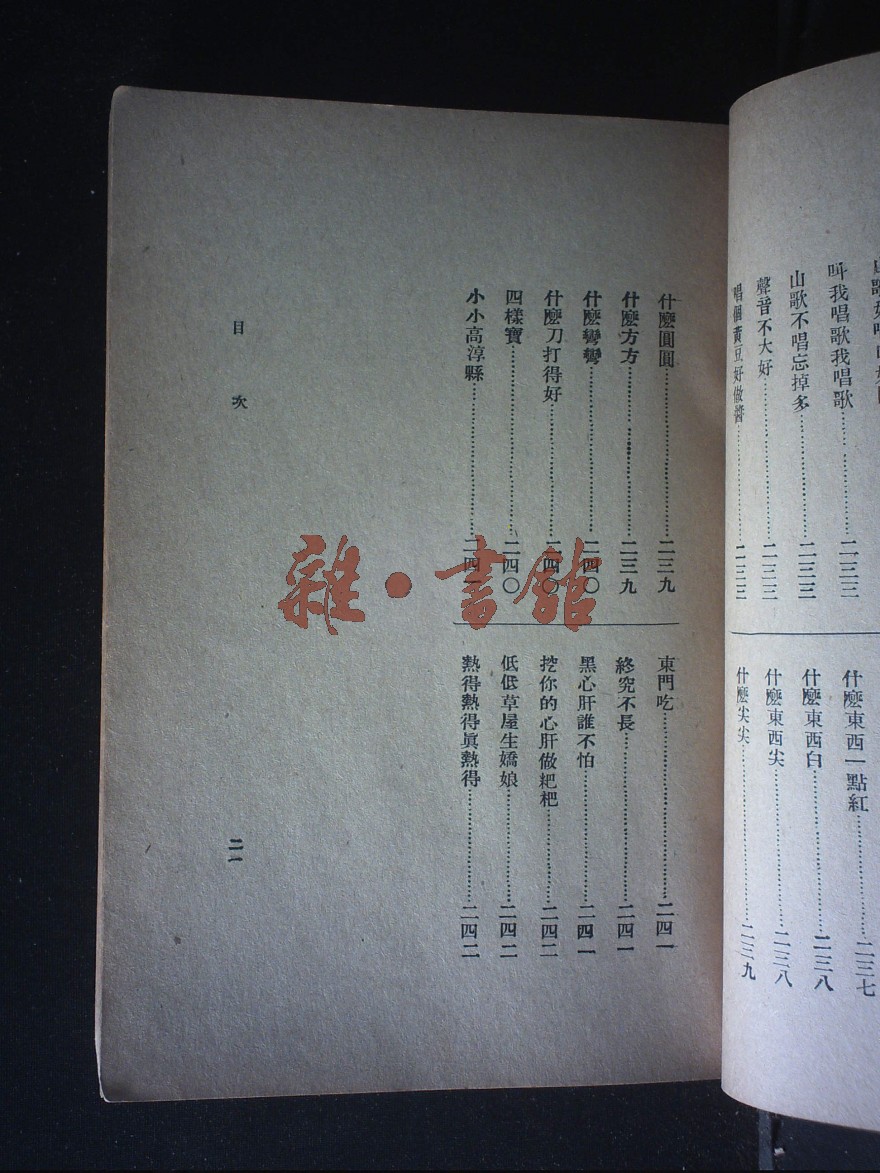 叫我唱歌我唱歌……二三三
山歌不唱忘掉多……二三三
聲音不大好……二三三
唱個黃豆好做醬……二三三
什麼東西一點紅……二三七
什麼東西白……二三八
什麼東西尖……二三八
什麼尖尖……二三九
什麼圓圓……二三九
什麼方方……二三九
什麼彎彎……二四〇
什麼刀打得好……二四〇
四樣寶……二四〇
小小高淳縣……二四
東門吃……二四一
終究不長……二四一
黑心肝誰不怕……二四一
挖你的心肝做粑粑……二四二
低低草屋生嬌娘……二四二
熱得熱得眞熱得……二四二
目次
二一
雜·書館